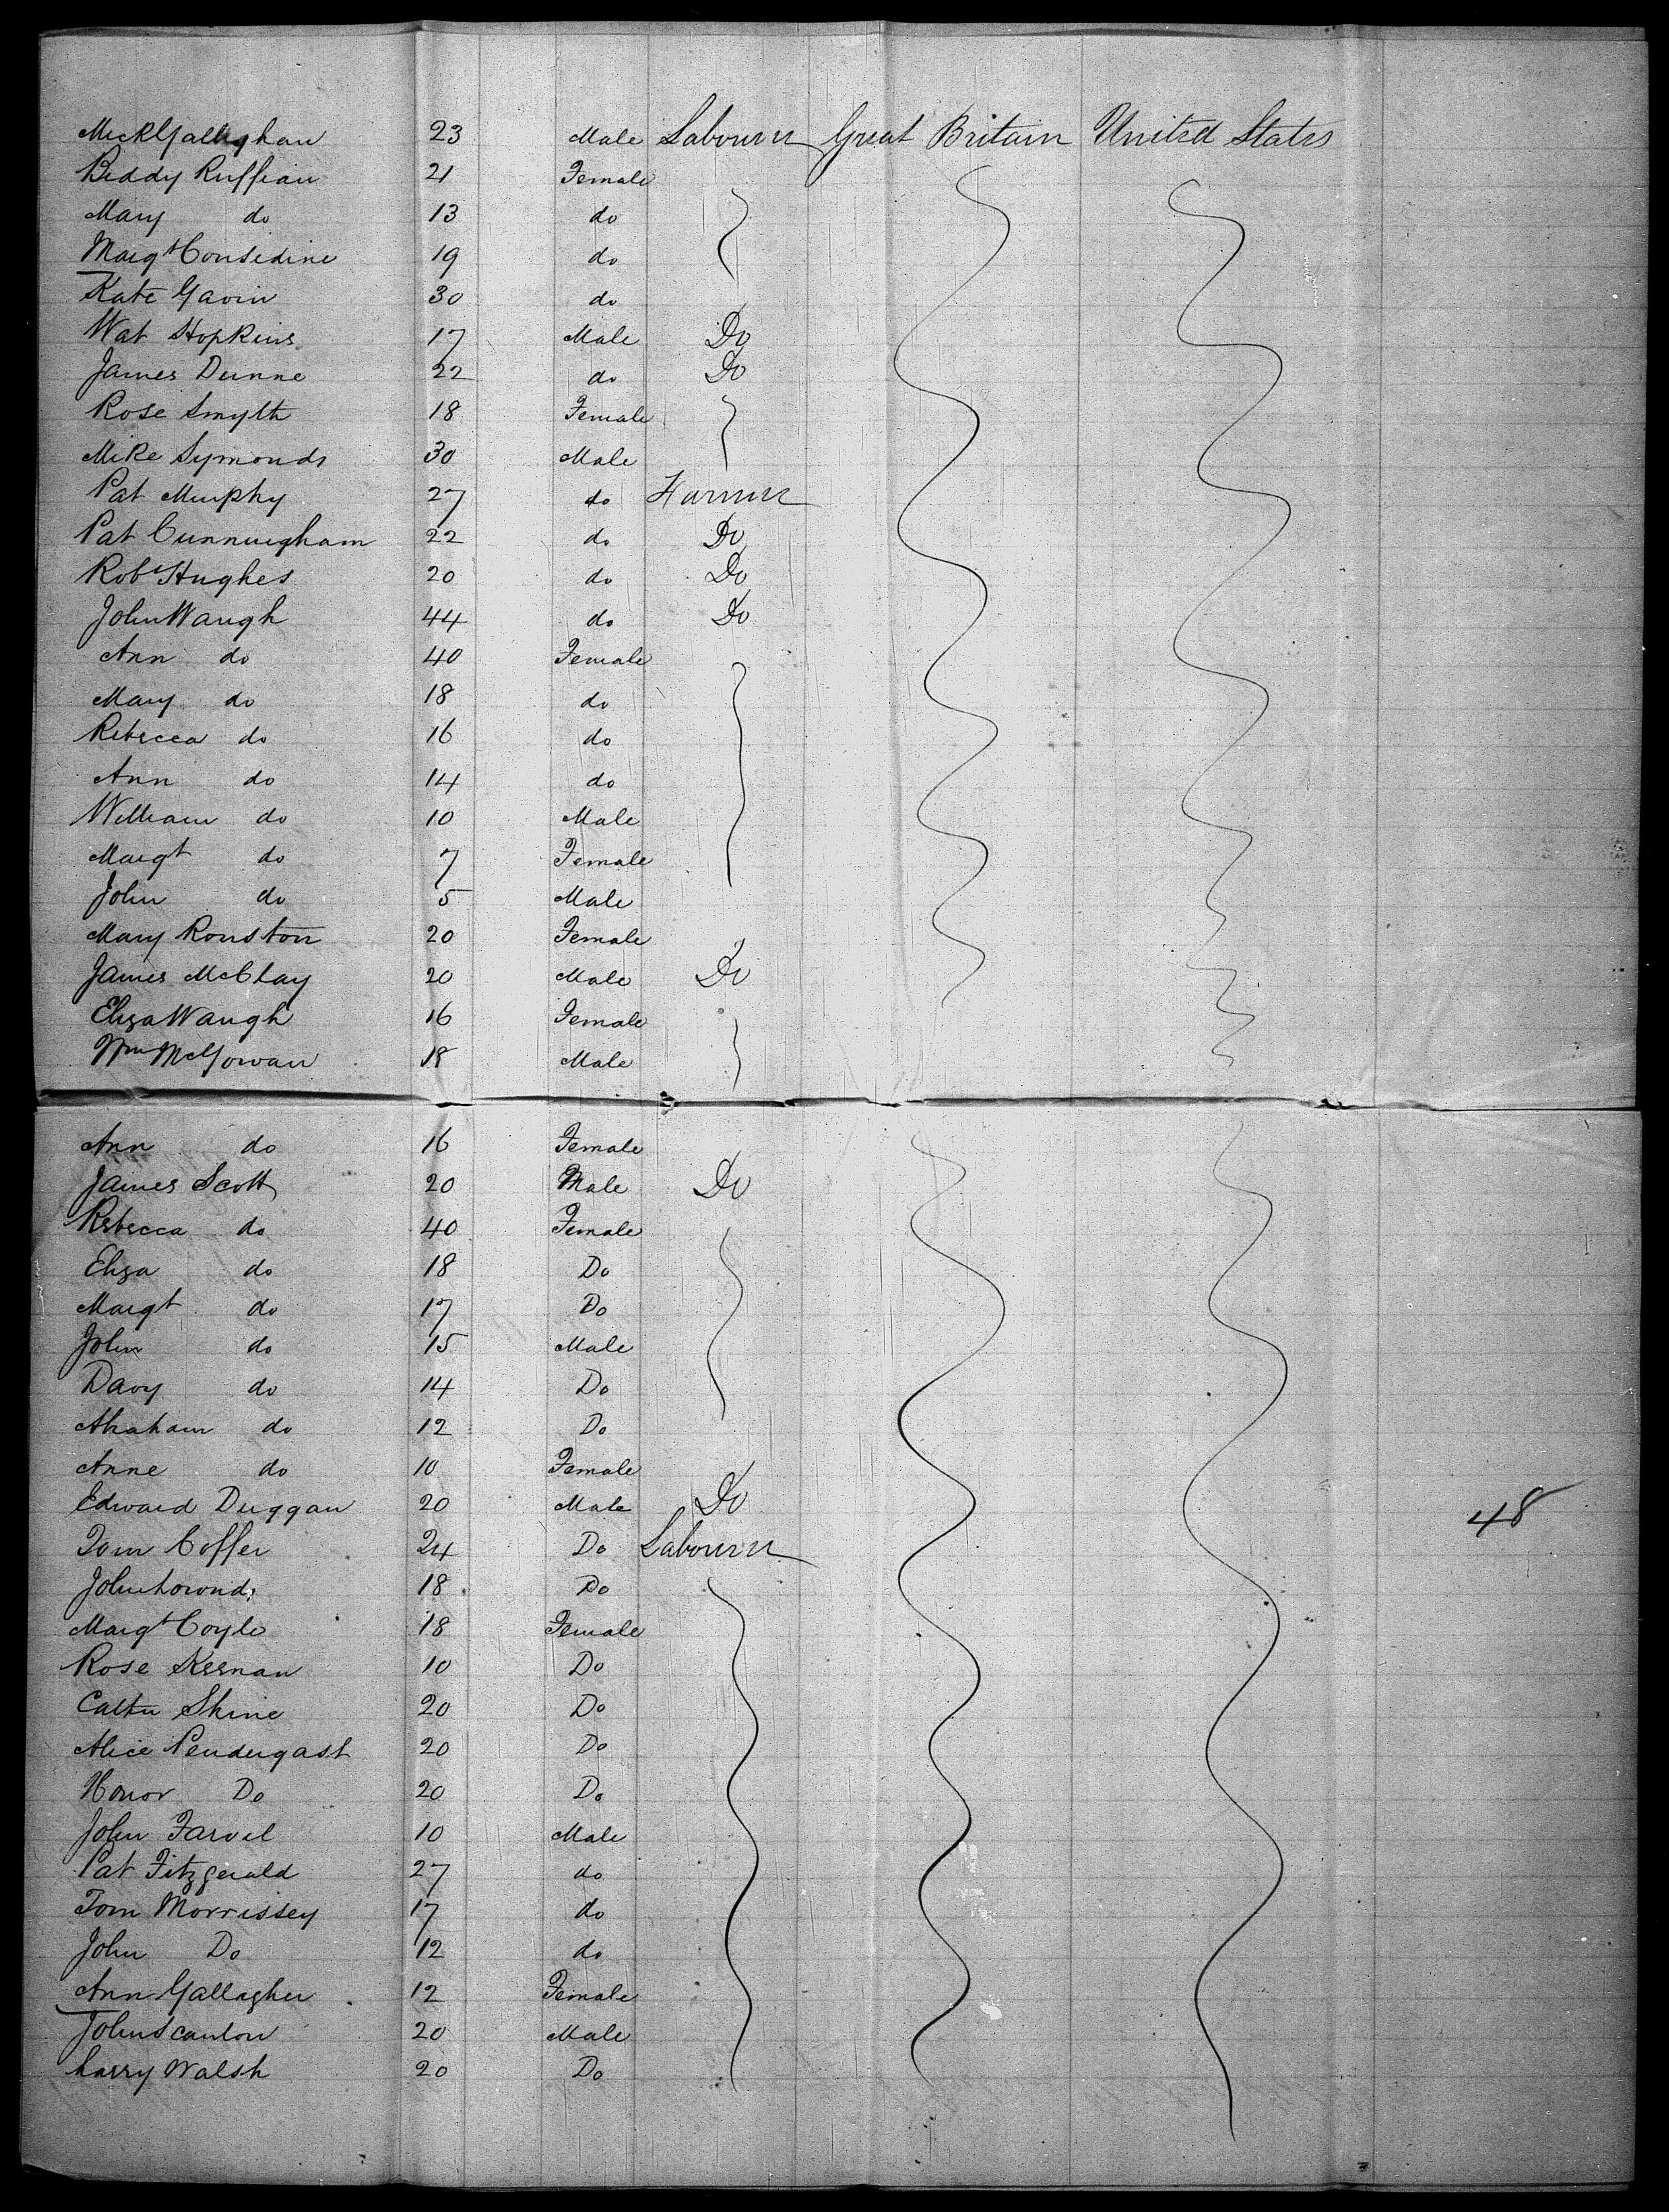 Mick Gallaghan 23 Male Labourer Great Britain United States
Biddy Ruffian 21 Female
Mary do 13 do
Margt Considine 19 do
Kate Gavin 30 do
Wat Hopkins 17 Male Do
James Dunne 22 do Do
Rose Smyth 18 Female
Mike Symonds 30 Male
Pat Murphy 27 do Farmer
Pat Cunningham 22 do Do
Robt Hughes 20 do Do
John Waugh 44 do Do
Ann do 40 Female
Mary do 18 do
Rebecca do 16 do
Ann do 14 do
William do 10 Male
Margt do 7 Female
John do 5 Male
Mary Rouston 20 Female
James McClay 20 Male Do
Eliza Waugh 16 Female
Wm McGowan 18 Male
Ann do 16 Female
James Scott 20 Male Do
Rebecca do 40 Female
Eliza do 18 Do
Margt do 17 Do
John do 15 Male
Davy do 14 Do
Abraham do 12 Do
Anne do 10 Female
Edward Duggan 20 Male Do 48
Tom Coffer 24 Do Labourer
John 18 Do
Margt Coyle 18 Female
Rose Keenan 10 Do
Cathn Shine 20 Do
Alice Pendergast 20 Do
Honor Do 20 Do
John Farvel 10 Male
Pat Fitzgerald 27 do
Tom Morrissey 17 do
John Do 12 do
Ann Gallagher 12 Female
John Scanlon 20 Male
Larry Walsh 20 Do